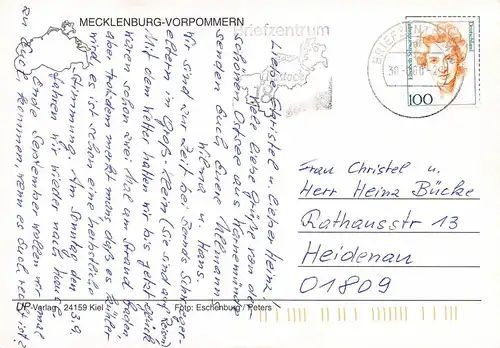 MECKLENBURG-VORPOMMERN
Liebe Christel u. lieber Heinz!
Viele liebe Grüße von der
schönen Ostsee aus Warnemünde
senden Euch Eure Ullmanns
Wilma u. Hans.
Wir sind zur Zeit bei Bernds Schwieger-
eltern in Groß Klein (sie sind auf Reisen)
Mit dem Wetter hatten wir bis jetzt Glück
waren schon zwei Mal am Strand baden,
aber trotzdem merkt man, daß es kühler
wird, es ist schon eine herbstliche
Stimmung. Am Sonntag den 3.9.
fahren wir wieder nach Hause.
Ende September wollen wir mal
zu Euch kommen, wenn es Euch recht ist?
Briefzentrum
Rostock
18
BRIEFZENTRUM
Deutschland
100
Frau Christel u.
Herr Heinz Bücke
Rathausstr 13
Heidenau
01809
UP-Verlag · 24159 Kiel
Foto: Eschenburg / Peters